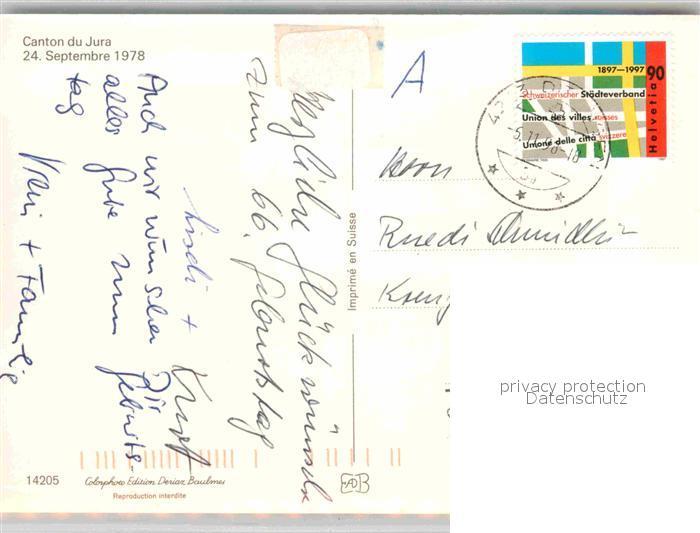 Canton du Jura
24. Septembre 1978
Herzliche Glückwünsche
zum 66. Geburtstag
Lisdi + Kurt
Auch wir wünschen Dir
alles Gute zum Geburts-
tag
+ Familie
A
1897–1997
90
Helvetia
Schweizerischer Städteverband
Union des villes suisses
Unione delle città svizzere
Herrn
Ruedi Schmidlin
Imprimé en Suisse
14205
Colorphoto Edition Deriaz Baulmes
Reproduction interdite
privacy protection
Datenschutz